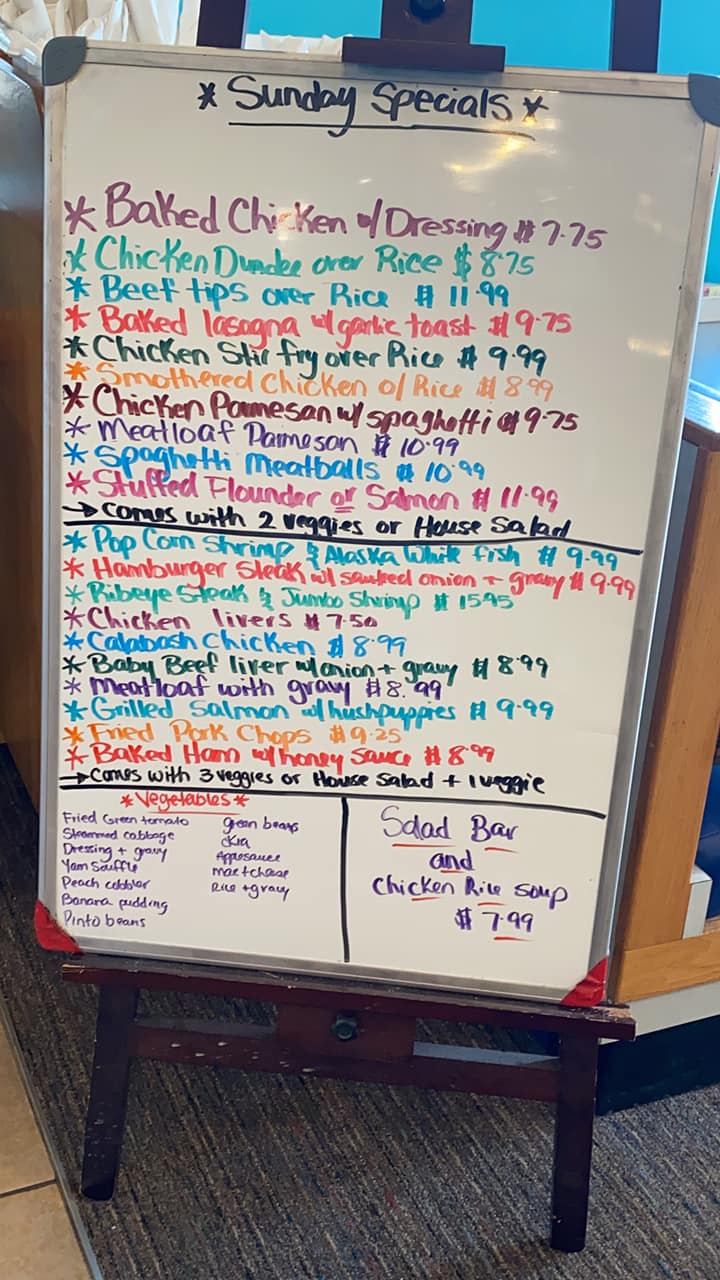 * Sunday Specials *
* Baked Chicken w/ Dressing $7.75
* Chicken Dundee over Rice $8.75
* Beef tips over Rice $11.99
* Baked lasagna w/ garlic toast $9.75
* Chicken Stir fry over Rice $9.99
* Smothered Chicken o/ Rice $8.99
* Chicken Parmesan w/ spaghetti $9.75
* Meatloaf Parmesan $10.99
* Spaghetti Meatballs $10.99
* Stuffed Flounder or Salmon $11.99
→ Comes with 2 veggies or House Salad
* Pop Corn Shrimp & Alaska White fish $9.99
* Hamburger Steak w/ sauteed onion + gravy $9.99
* Ribeye Steak & Jumbo Shrimp $15.95
* Chicken livers $7.50
* Calabash Chicken $8.99
* Baby Beef liver w/ onion + gravy $8.99
* Meatloaf with gravy $8.99
* Grilled Salmon w/ hushpuppies $9.99
* Fried Pork Chops $9.25
* Baked Ham w/ honey Sauce $8.99
→ Comes with 3 veggies or House Salad + 1 veggie
* Vegetables *
Fried Green tomato
Steammed cabbage
Dressing + gravy
Yam Souffle
Peach cobbler
Banana pudding
Pinto beans
green beans
okra
Applesauce
mac + cheese
Rice + gravy
Salad Bar
and
Chicken Rice soup
$7.99